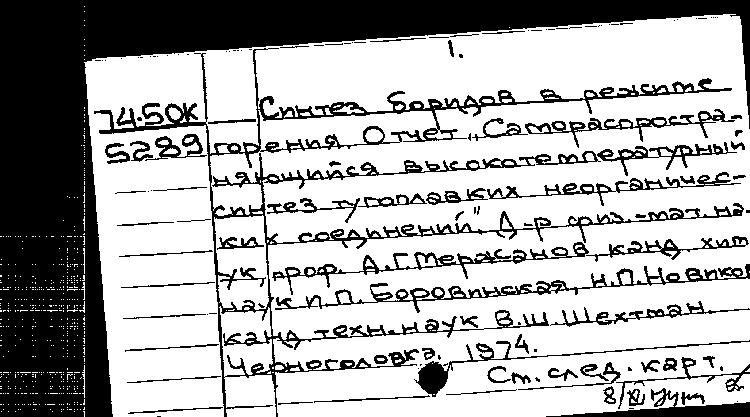 1.
74.50К Синтез боридов в режиме
S289 горения. Отчет „Самораспростра-
няющийся высокотемпературный
синтез тугоплавких неорганичес-
ких соединений." Д-р физ.-мат. на-
ук, проф. А.Г.Мержанов, канд. хим
наук И.П. Боровинская, Н.П.Новиков
канд. техн. наук В.Ш.Шехтман.
Черноголовка. 1974.
См. след. карт.